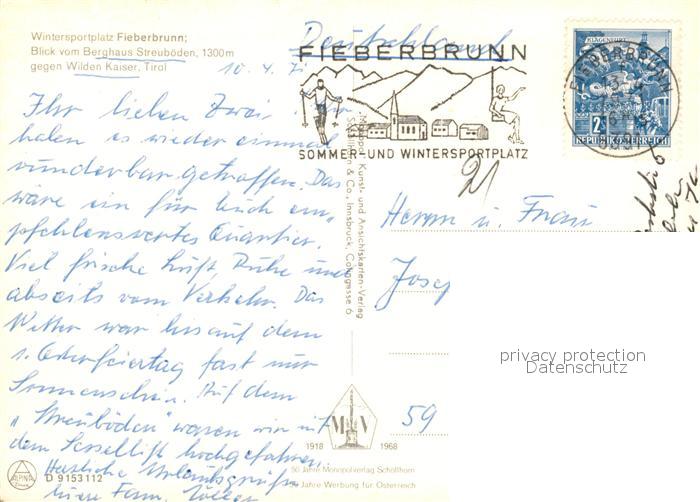 Wintersportplatz Fieberbrunn;
Blick vom Berghaus Streuböden, 1300m
gegen Wilden Kaiser, Tirol
10. 4. 71
Ihr lieben Zwei
haben es wieder einmal
wunderbar getroffen. Das
wäre ein für Euch em-
pfehlenswertes Quartier.
Viel frische Luft, Ruhe und
abseits vom Verkehr. Das
Wetter war bis auf dem
1. Osterfeiertag fast nur
Sonnenschein. Auf dem
"Streuböden" waren wir mit
dem Sessellift hochgefahren.
Herzliche Urlaubsgrüße
Eure Fam.
ALPINA
D 9153112
Monopol Kunst- und Ansichtskarten-Verlag
Schöllhorn & Co., Innsbruck, Colingasse 6
1918 1968
50 Jahre Monopolverlag Schöllhorn
Jahre Werbung für Österreich
Deutschland
FIEBERBRUNN
SOMMER- UND WINTERSPORTPLATZ
KLAGENFURT
2
REPUBLIK ÖSTERREICH
FIEBERBRUNN
21
Herrn u. Frau
Josef
privacy protection
Datenschutz
59